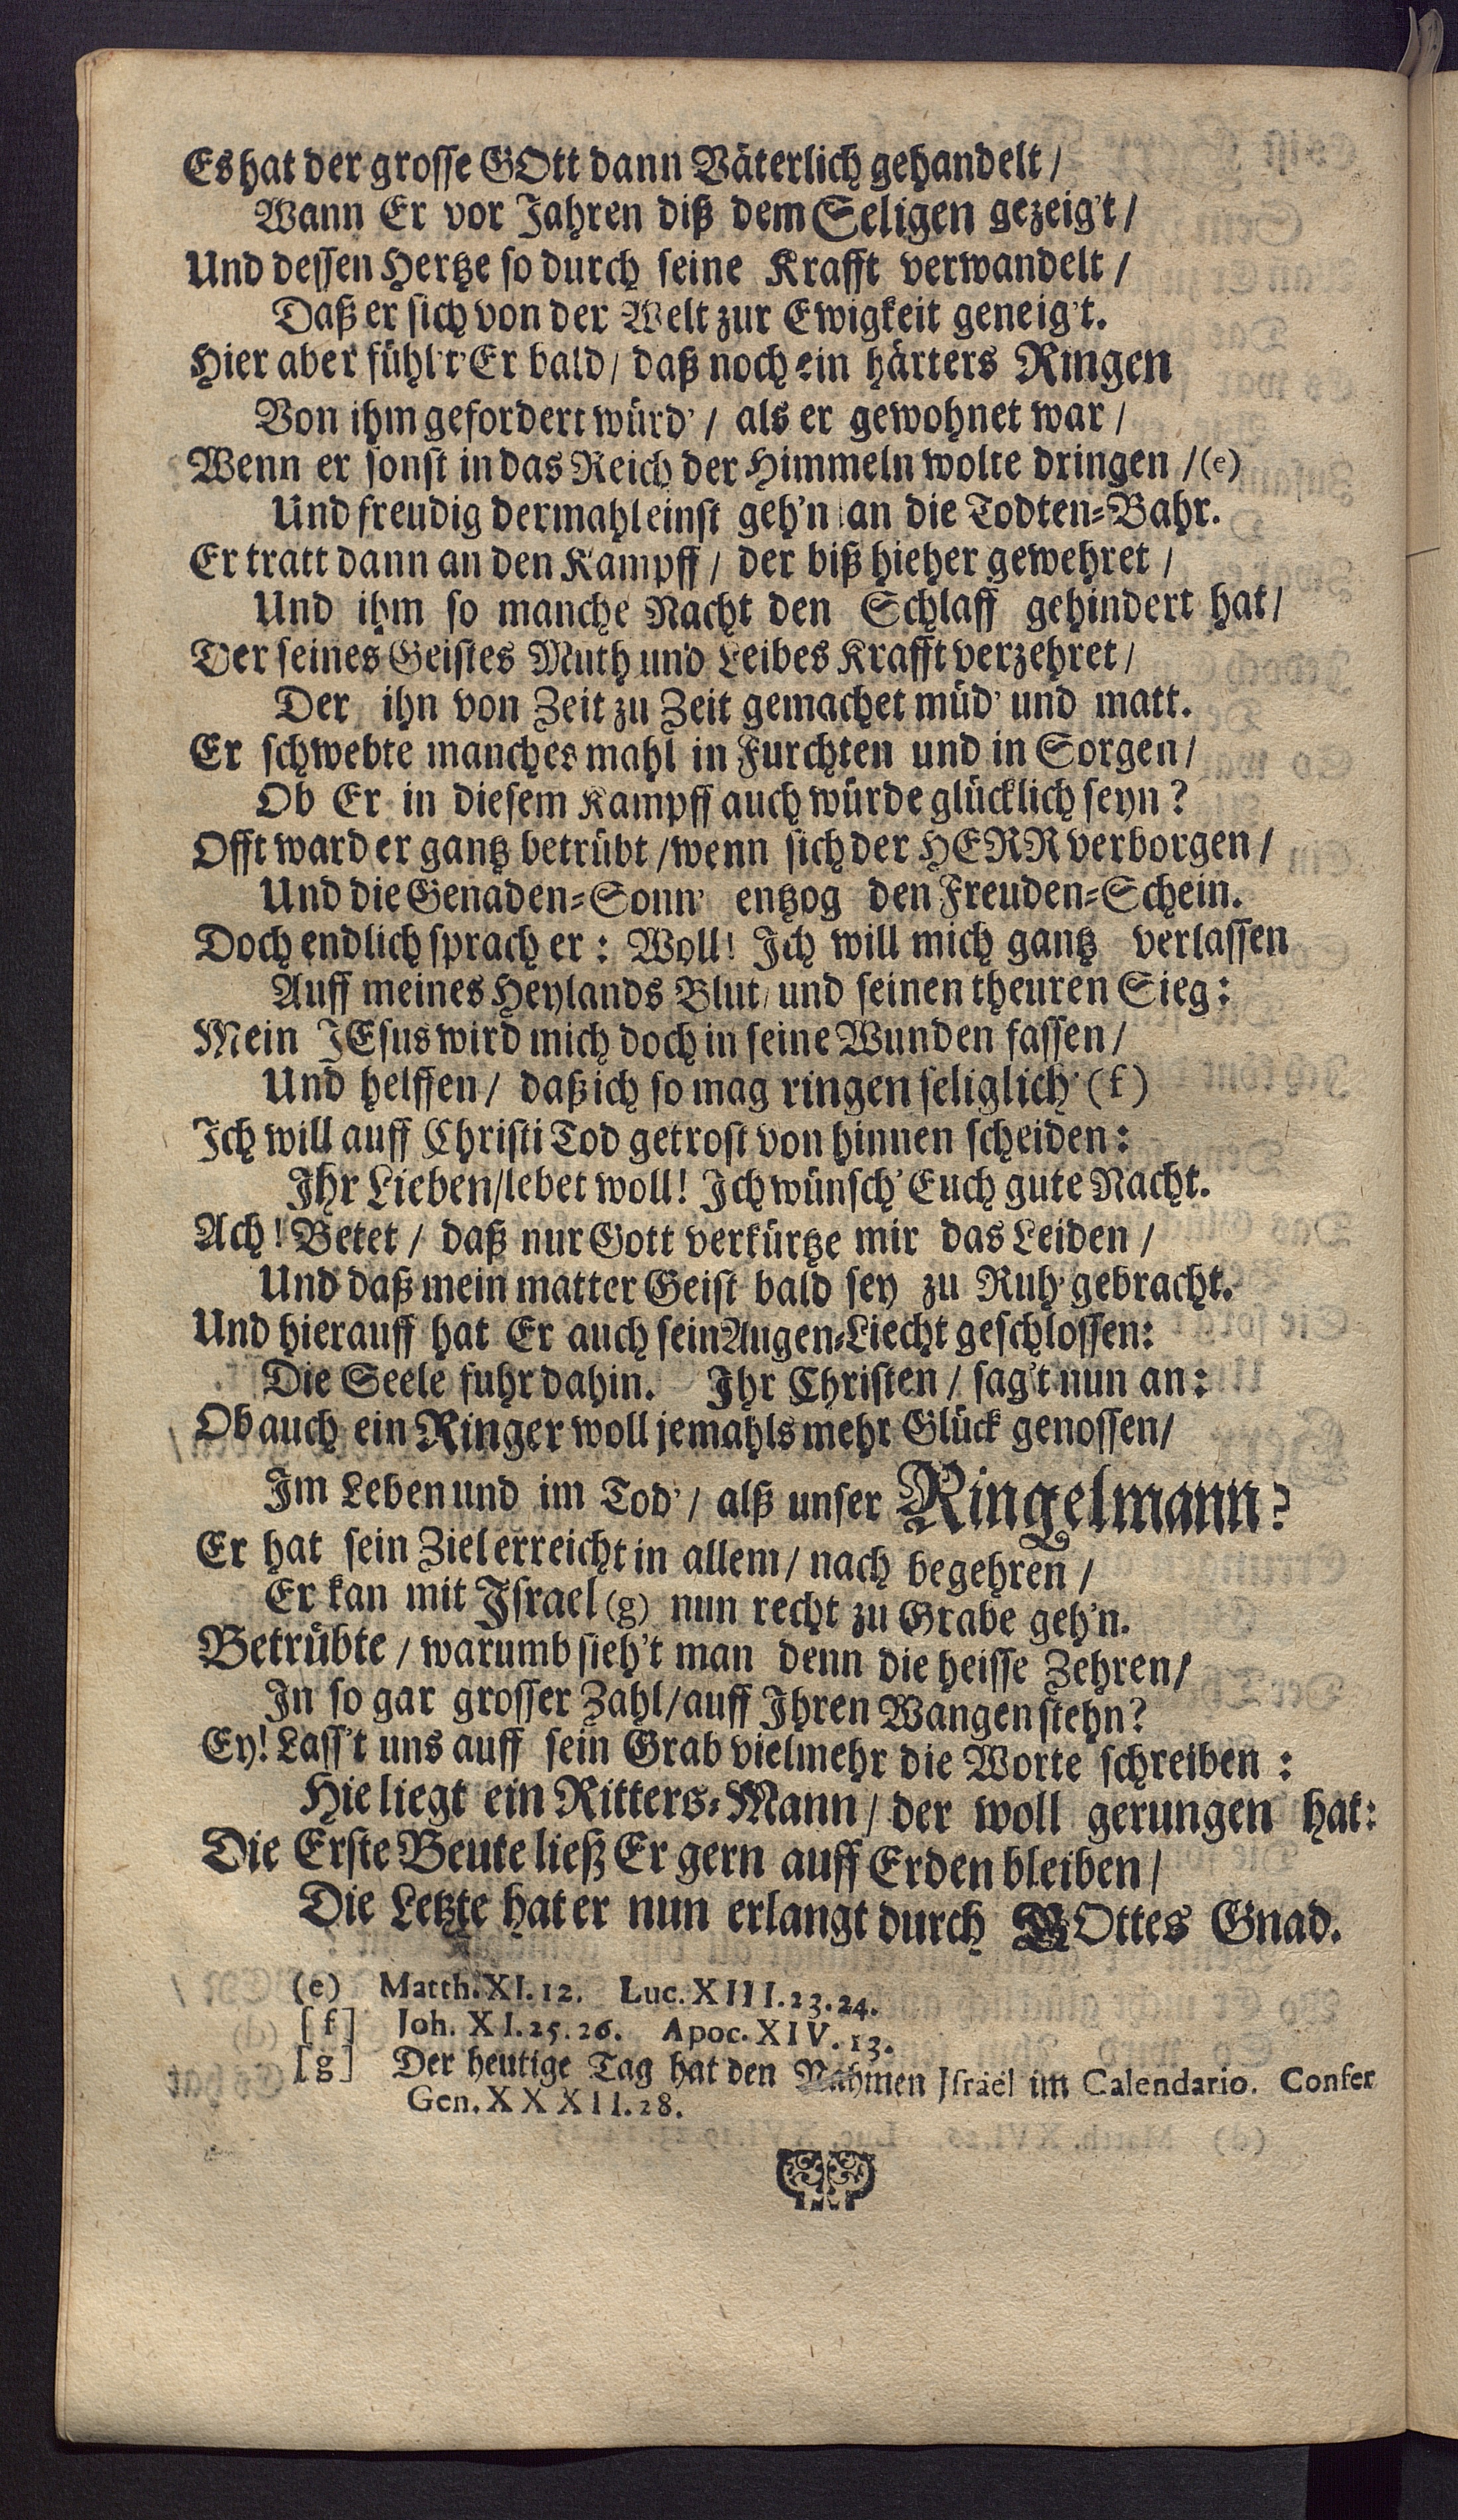 Es hat der grosse GOtt dann Väterlich gehandelt /
Wann Er vor Jahren diß dem Seligen gezeig't /
Und dessen Hertze so durch seine Krafft verwandelt /
Daß er sich von der Welt zur Ewigkeit geneig't.
Hier aber fühl't' Er bald / daß noch ein härters Ringen
Von ihm gefordert würd' / als er gewohnet war /
Wenn er sonst in das Reich der Himmeln wolte dringen / (e)
Und freudig dermahleinst geh'n an die Todten-Bahr.
Er tratt dann an den Kampff / der biß hieher gewehret /
Und ihm so manche Nacht den Schlaff gehindert hat /
Der seines Geistes Muth und Leibes Krafft verzehret /
Der ihn von Zeit zu Zeit gemachet müd' und matt.
Er schwebte manches mahl in Furchten und in Sorgen /
Ob Er in diesem Kampff auch würde glücklich seyn?
Offt ward er gantz betrübt / wenn sich der HERR verborgen /
Und die Genaden-Sonn' entzog den Freuden-Schein.
Doch endlich sprach er: Woll! Ich will mich gantz verlassen
Auff meines Heylands Blut / und seinen theuren Sieg:
Mein JEsus wird mich doch in seine Wunden fassen /
Und helffen / daß ich so mag ringen seliglich' (f)
Ich will auff Christi Tod getrost von hinnen scheiden:
Ihr Lieben / lebet woll! Ich wünsch' Euch gute Nacht.
Ach! Betet / daß nur Gott verkürtze mir das Leiden /
Und daß mein matter Geist bald sey zu Ruh' gebracht.
Und hierauff hat Er auch sein Augen-Liecht geschlossen:
Die Seele fuhr dahin. Ihr Christen / sag't nun an:
Ob auch ein Ringer woll jemahls mehr Glück genossen /
Im Leben und im Tod' / alß unser Ringelmann?
Er hat sein Ziel erreicht in allem / nach begehren /
Er kan mit Israel (g) nun recht zu Grabe geh'n.
Betrübte / warumb sieh't man denn die heisse Zehren /
In so gar grosser Zahl / auff Ihren Wangen stehn?
Ey! Lass't uns auff sein Grab vielmehr die Worte schreiben:
Hie liegt ein Ritters-Mann / der woll gerungen hat:
Die Erste Beute ließ Er gern auff Erden bleiben /
Die Letzte hat er nun erlangt durch GOttes Gnad.
(e) Matth. XI. 12. Luc. XIII. 23. 24.
[f] Joh. XI. 25. 26. Apoc. XIV. 13.
[g] Der heutige Tag hat den Nahmen Israël im Calendario. Confer
Gen. XXXII. 28.